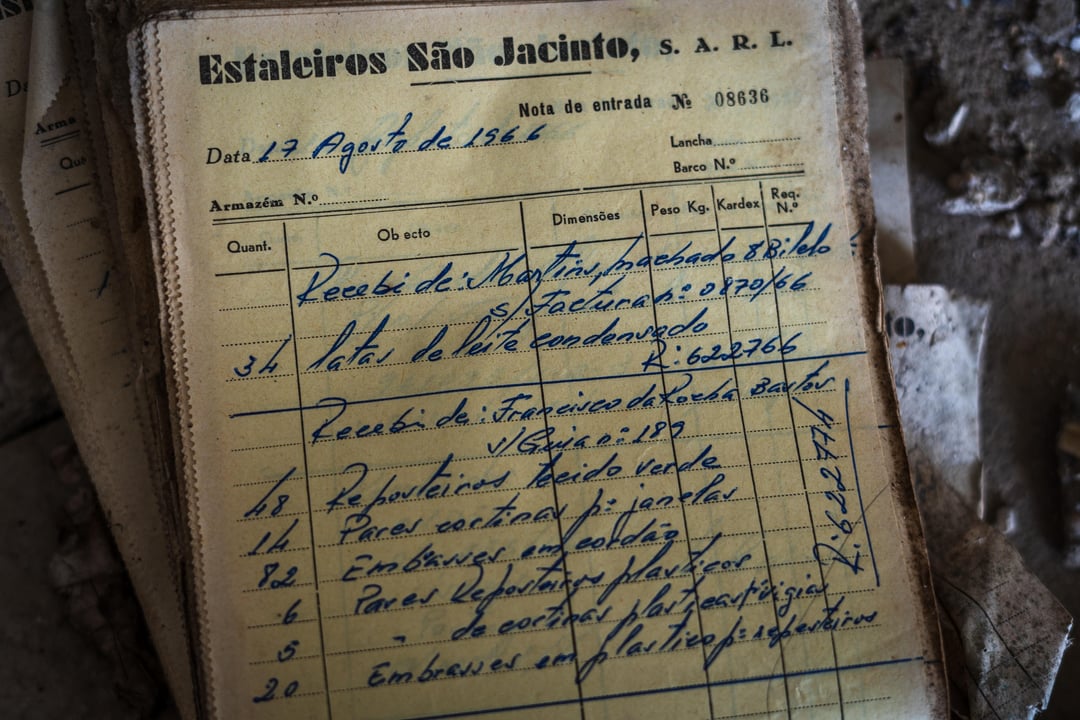 Estaleiros São Jacinto, S. A. R. L.
Nota de entrada Nº 08636
Data 17 Agosto de 1966
Lancha
Barco N.º
Armazém N.º
Quant. Ob ecto Dimensões Peso Kg. Kardex Req. N.º
Recebi de: Martins, Machado & Bilelo
s/ Factura nº 0870/66
34 latas de leite condensado
R: 622766
Recebi de: Francisco da Rocha Bastos
s/ Guia nº 189
48 Reposteiros tecido verde
14 Pares cortinas pª janelas
82 Embrasses em cordão
6 Pares Reposteiros plasticos
5 " de cortinas plast,
20 Embrasses em plastico pª reposteiros
R: 622774
Da
Arma
Qua